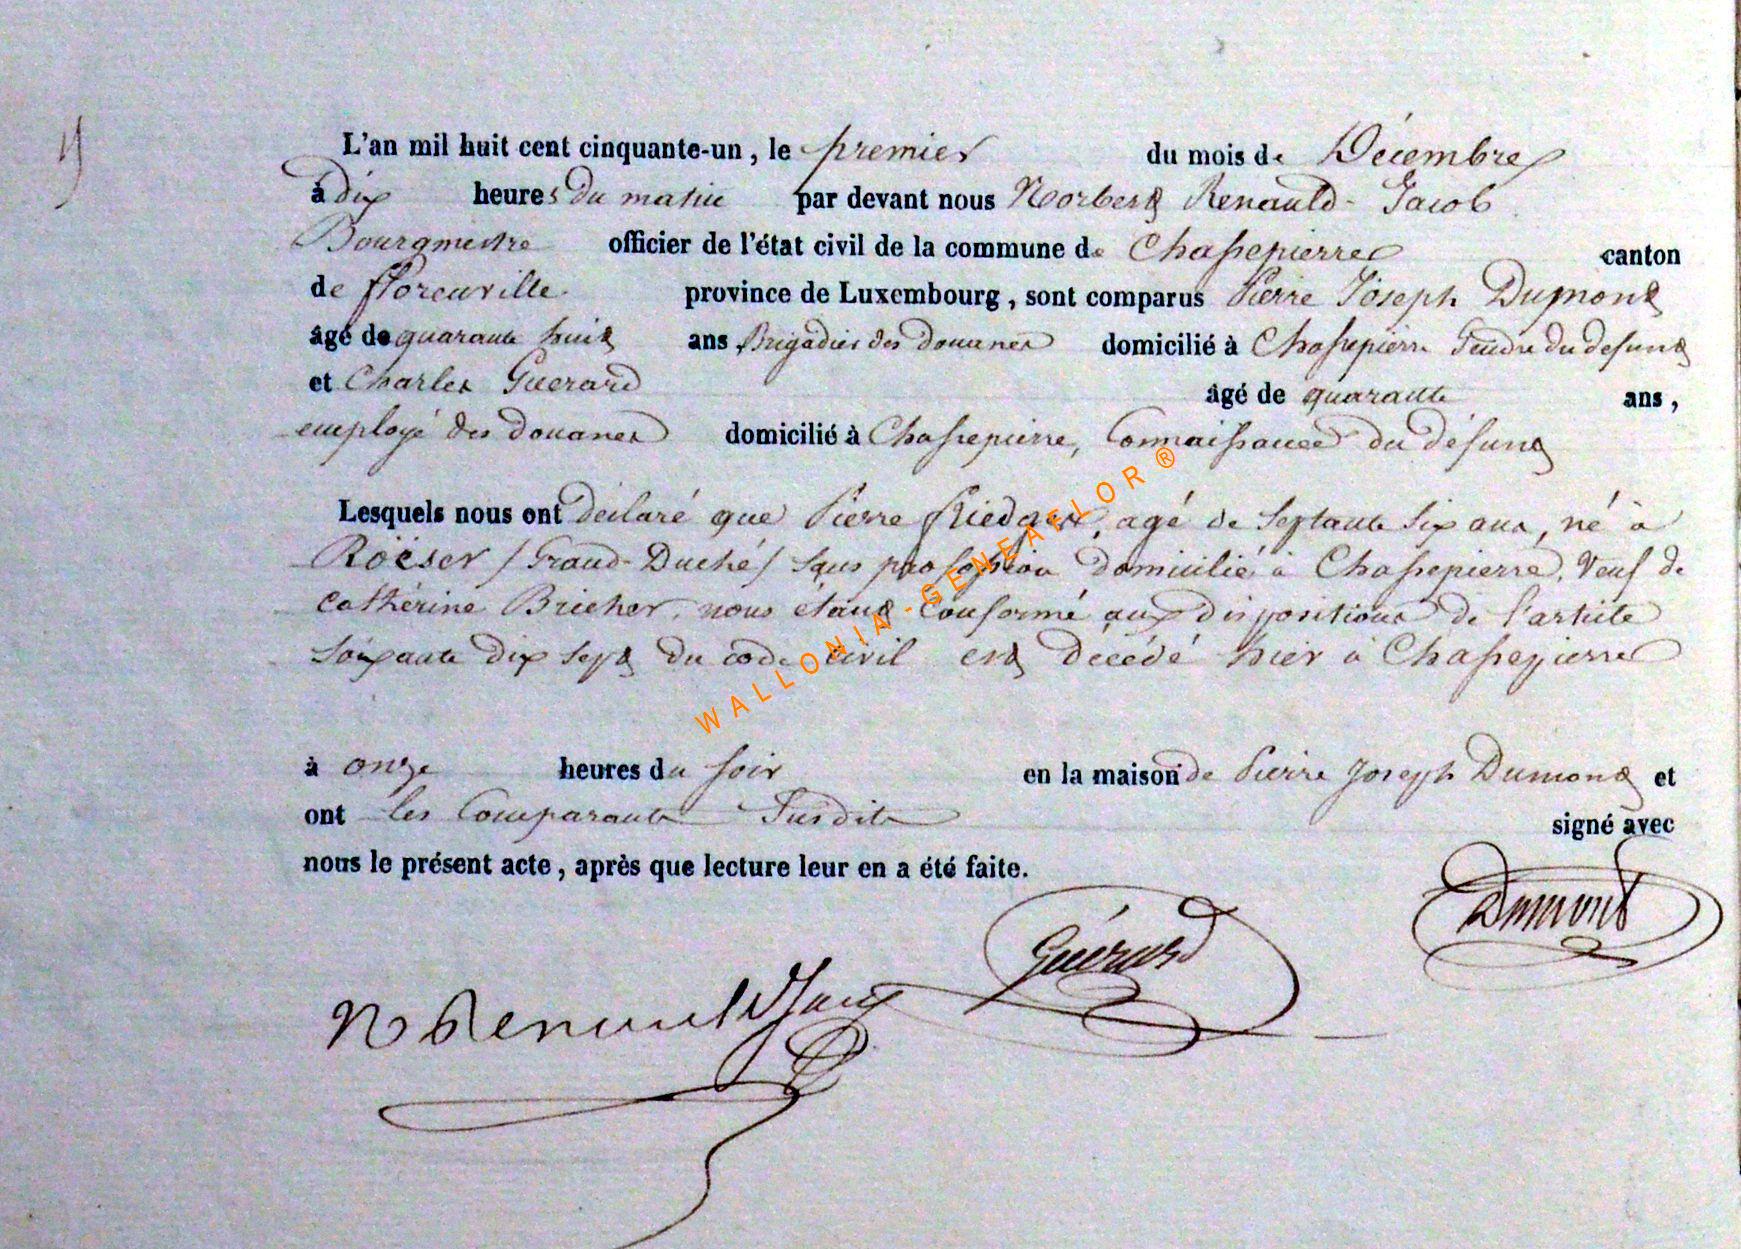 L'an mil huit cent cinquante-un, le premier du mois de Décembre
à dix heures du matin par devant nous Norbert Renauld-Jacob
Bourgmestre officier de l'état civil de la commune de Chassepierre canton
de florenville province de Luxembourg, sont comparus Pierre Joseph Dumont
âgé de quarante huit ans, Brigadier des douanes domicilié à Chassepierre Gendre du defunt
et Charles Guerard âgé de quarante ans,
employé des douanes domicilié à Chassepierre, Connaissance du défunt
Lesquels nous ont déclaré que Pierre Riedger, agé de septante six ans, né à
Röëser / Grand-Duché / sans profession domicilié à Chassepierre, Veuf de
Cathérine Bricher, nous étant conformé aux dispositions de l'article
soixante dix sept du code civil est décédé hier à Chassepierre
à onze heures du soir en la maison de Pierre Joseph Dumont et
ont les Comparants susdits signé avec
nous le présent acte, après que lecture leur en a été faite.
Dumont
Guérard
N Renauld Jacob
WALLONIA-GENEAFLOR®